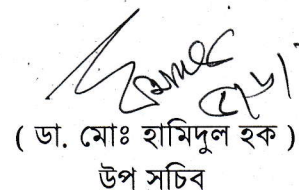 ( ডা. মোঃ হামিদুল হক )
উপ সচিব